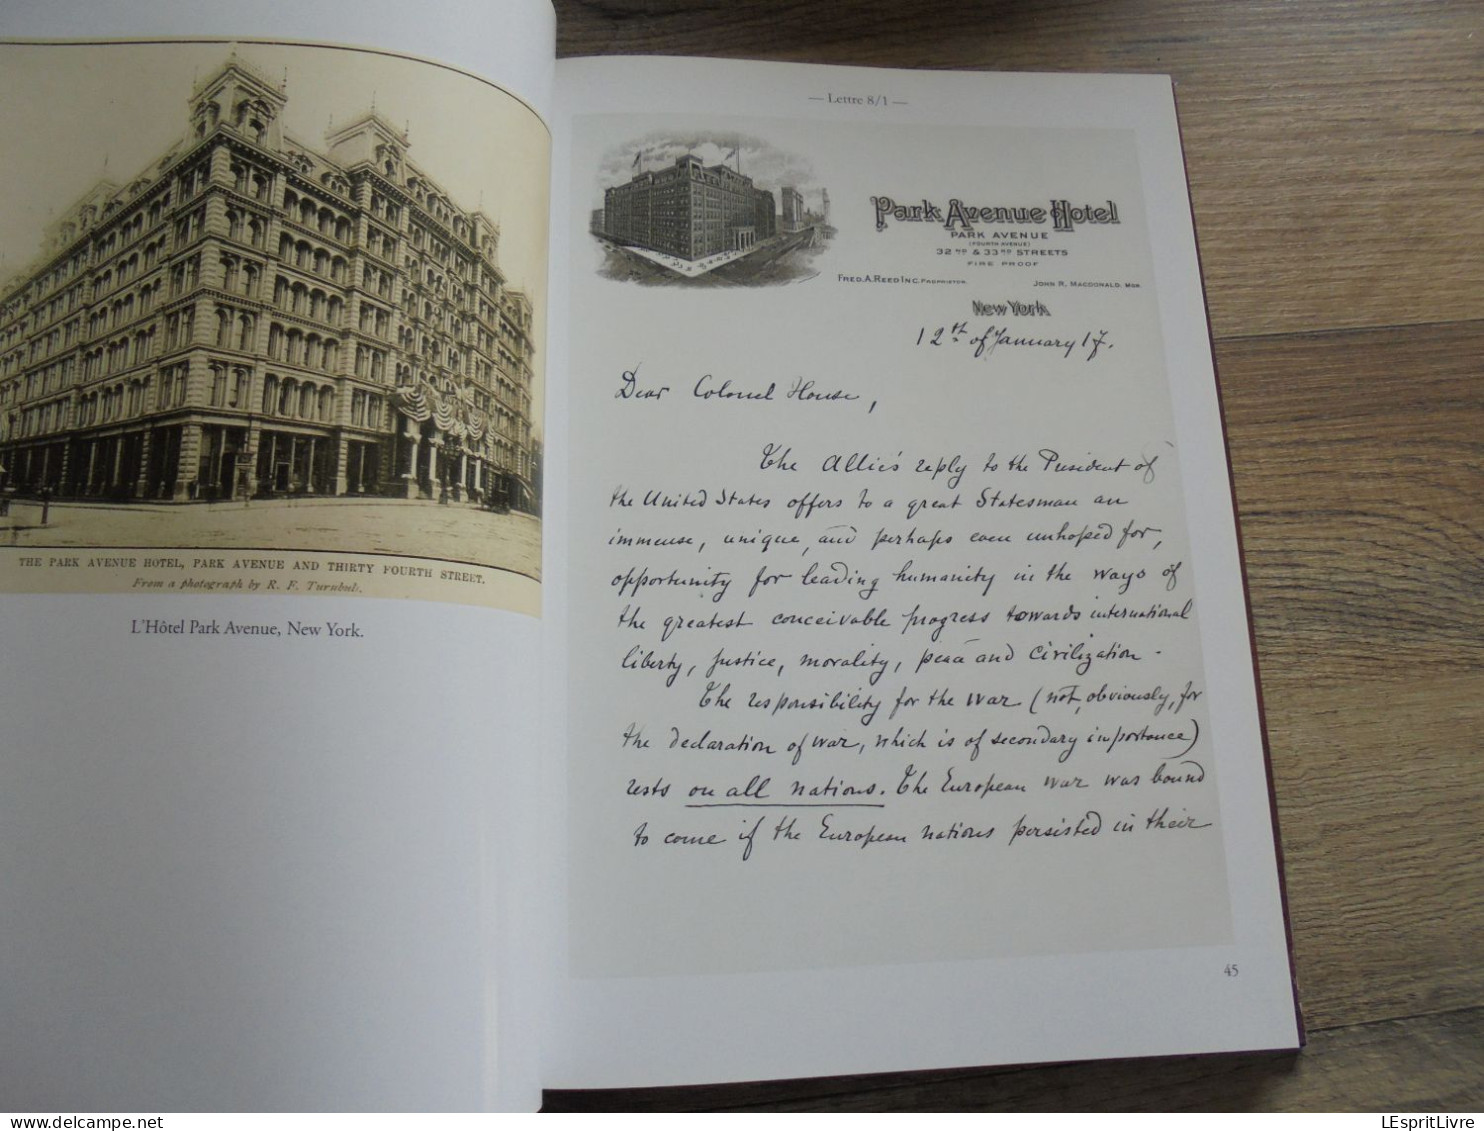 THE PARK AVENUE HOTEL, PARK AVENUE AND THIRTY FOURTH STREET.
From a photograph by R. F. Turnbull.
L'Hôtel Park Avenue, New York.
— Lettre 8/1 —
Park Avenue Hotel
PARK AVENUE
(FOURTH AVENUE)
32ND & 33RD STREETS
FIRE PROOF
FRED. A. REED INC. PROPRIETOR.
JOHN R. MACDONALD. MGR.
New York
12th of January 17.
Dear Colonel House,
The Allies reply to the President of
the United States offers to a great Statesman an
immense, unique, and perhaps even unhoped for,
opportunity for leading humanity in the ways of
the greatest conceivable progress towards international
liberty, justice, morality, peace and civilization.
The responsibility for the war (not, obviously, for
the declaration of war, which is of secondary importance)
rests on all nations. The European war was bound
to come if the European nations persisted in their
45
LEspritLivre